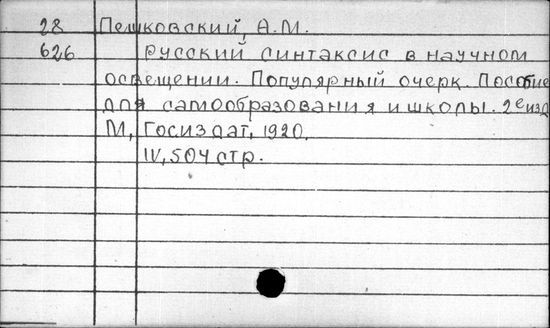 28 Пешковский, А.М.
626 Русский синтаксис в научном
освещении. Популярный очерк. Пособие
для самообразования и школы. 2е изд.
М, Госиздат, 1920.
IV, 504 стр.